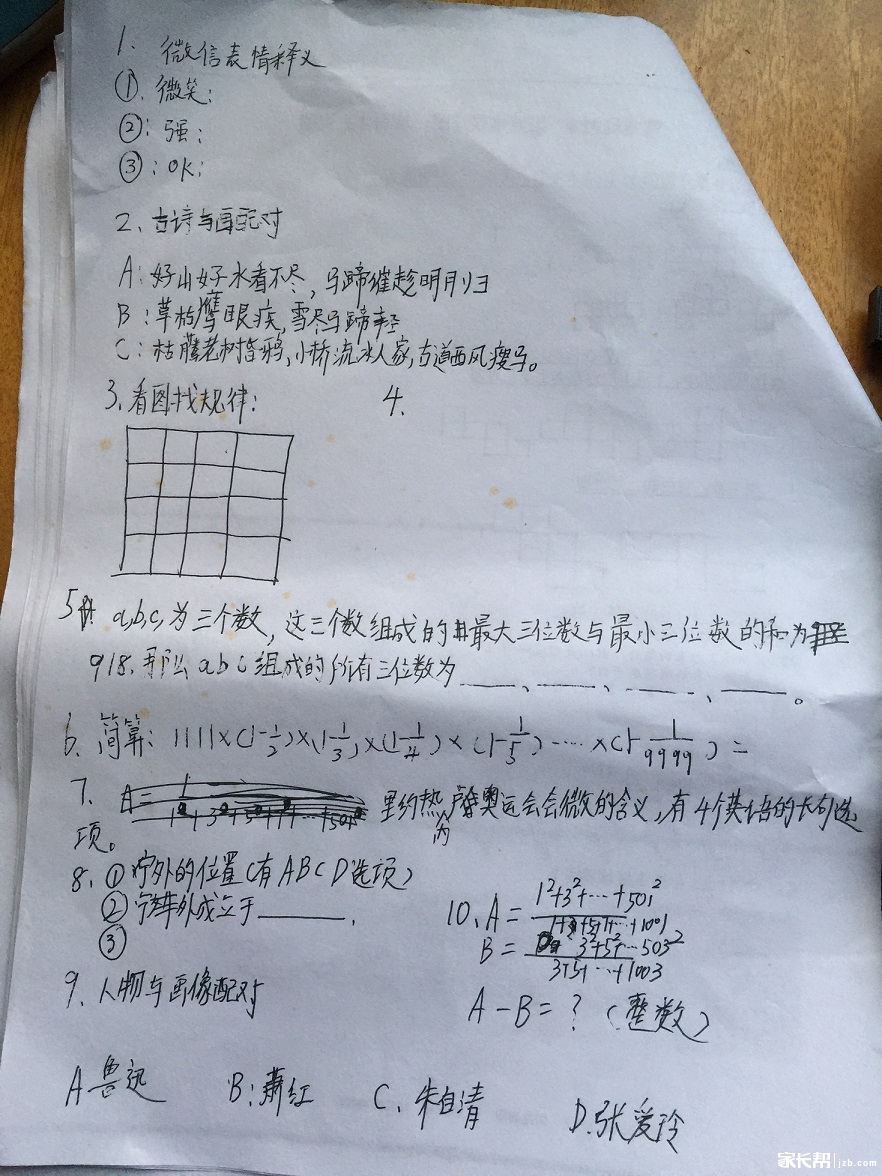 1. 微信表情释义
①. 微笑:
②: 强:
③: OK:
2、古诗与画配对
A: 好山好水看不尽, 马蹄催趁明月归
B: 草枯鹰眼疾, 雪尽马蹄轻
C: 枯藤老树昏鸦, 小桥流水人家, 古道西风瘦马。
3. 看图找规律:
4.
5 a,b,c,为三个数, 这三个数组成的最大三位数与最小三位数的和为
918. 那么abc组成的所有三位数为____、____、____、____。
6. 简算: 1111×(1-1/2)×(1-1/3)×(1-1/4)×(1-1/5)·····×(1-1/9999) =
7. 里约热内奥运会会徽的含义, 有4个英语的长句选
项。
8. ① 外的位置(有ABCD选项)
② 外成立于______.
③
10. A = 1²+3²+···+501² / 1+3+5+7+···+1001
B = 3²+5²+···503² / 3+5+···+1003
A-B=? (整数)
9. 人物与画像配对
A 鲁迅 B: 萧红 C. 朱自清 D. 张爱玲
家长帮 jzb.com